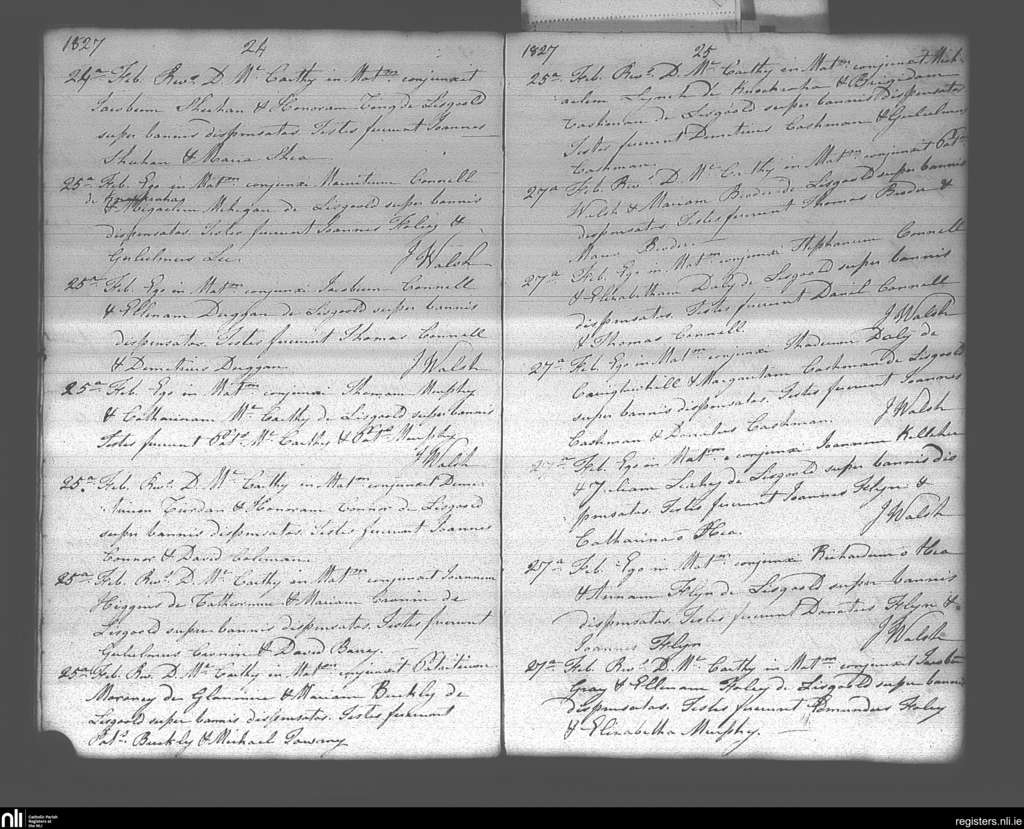 1827 24
24a Feb. Revd. D. Mc. Carthy in Matm conjunxit
Jacobum Sheehan & Honoram Tong de Lisgoold
super bannis dispensatas. Testes fuerunt Joannes
Sheehan & Maria Shea
25a Feb. Ego in Matm conjunxi Mauritium Connell
de
& Megaelem Mehegan de Lisgoold super bannis
dispensatas. Testes fuerunt Joannes Foley &
Gulielmus Lee. J Walsh
25a Feb. Ego in Matm conjunxi Jacobum Connell
& Ellenam Duggan de Lisgoold super bannis
dispensatas. Testes fuerunt Thomas Connell
& Demetrius Duggan J Walsh
25a Feb. Ego in Matm conjunxi Thomam Murphy
& Catharinam Mc. Carthy de Lisgoold super bannis
Testes fuerunt Patt. Mc. Carthy & Patt. Murphy
J Walsh
25a Feb. Revd. D. Mc. Carthy in Matm conjunxit Deme-
trium & Honoram Connor de Lisgoold
super bannis dispensatas. Testes fuerunt Joannes
Connor & David Coleman.
25a Feb. Revd. D. Mc. Carthy in Matm conjunxit Joannem
Higgins de & Mariam Cronin de
Lisgoold super bannis dispensatas. Testes fuerunt
Gulielmus Cronin & David Barry.
25a Feb. Revd. D. Mc. Carthy in Matm conjunxit Patritium
de & Mariam Buckly de
Lisgoold super bannis dispensatas. Testes fuerunt
Patt. Buckly & Michael
1827 25
25a Feb. Revd. D. Mc. Carthy in Matm conjunxit Mich-
aelem Lynch de & Brigidam
Cashman de Lisgoold super bannis dispensatas
Testes fuerunt Demetrius Cashman & Gulielmus
Cashman.
27a Feb. Revd. D. Mc. Carthy in Matm conjunxit Patt.
Walsh & Mariam de Lisgoold super bannis
dispensatas Testes fuerunt Thomas &
Maria
27a Feb. Ego in Matm conjunxi Stephanum Connell
& Elizabetham Daly de Lisgoold super bannis
dispensatas. Testes fuerunt Daniel Connell
& Thomas Connell. J Walsh
27a Feb. Ego in Matm conjunxi Thadeum Daly de
& Margaritam Cashman de Lisgoold
super bannis dispensatas. Testes fuerunt Joannes
Cashman & Donatus Cashman. J Walsh
27a Feb. Ego in Matm conjunxi Joannem Kelleher
& de Lisgoold super bannis dis
pensatas. Testes fuerunt Joannes Flyn &
Catharina o Hea. J Walsh
27a Feb. Ego in Matm conjunxi Richardum o Hea
& Annam Flyn de Lisgoold super bannis
dispensatas. Testes fuerunt Donatus Flyn &
Joannes Flyn J Walsh
27a Feb. Revd. D. Mc. Carthy in Matm conjunxit Jacobum
Gray & Ellenam Foley de Lisgoold super bannis
dispensatas. Testes fuerunt Edmundus Foley
& Elizabetha Murphy.
nli Catholic Parish
Registers at
the NLI
registers.nli.ie